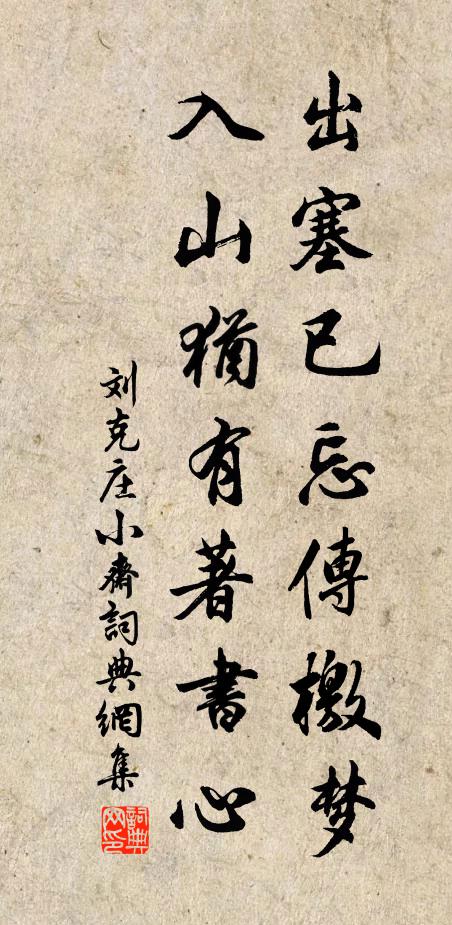 出塞已忘傳檄梦
入山猶有著書心
刘克庄小齋詞典網集
詞典网印